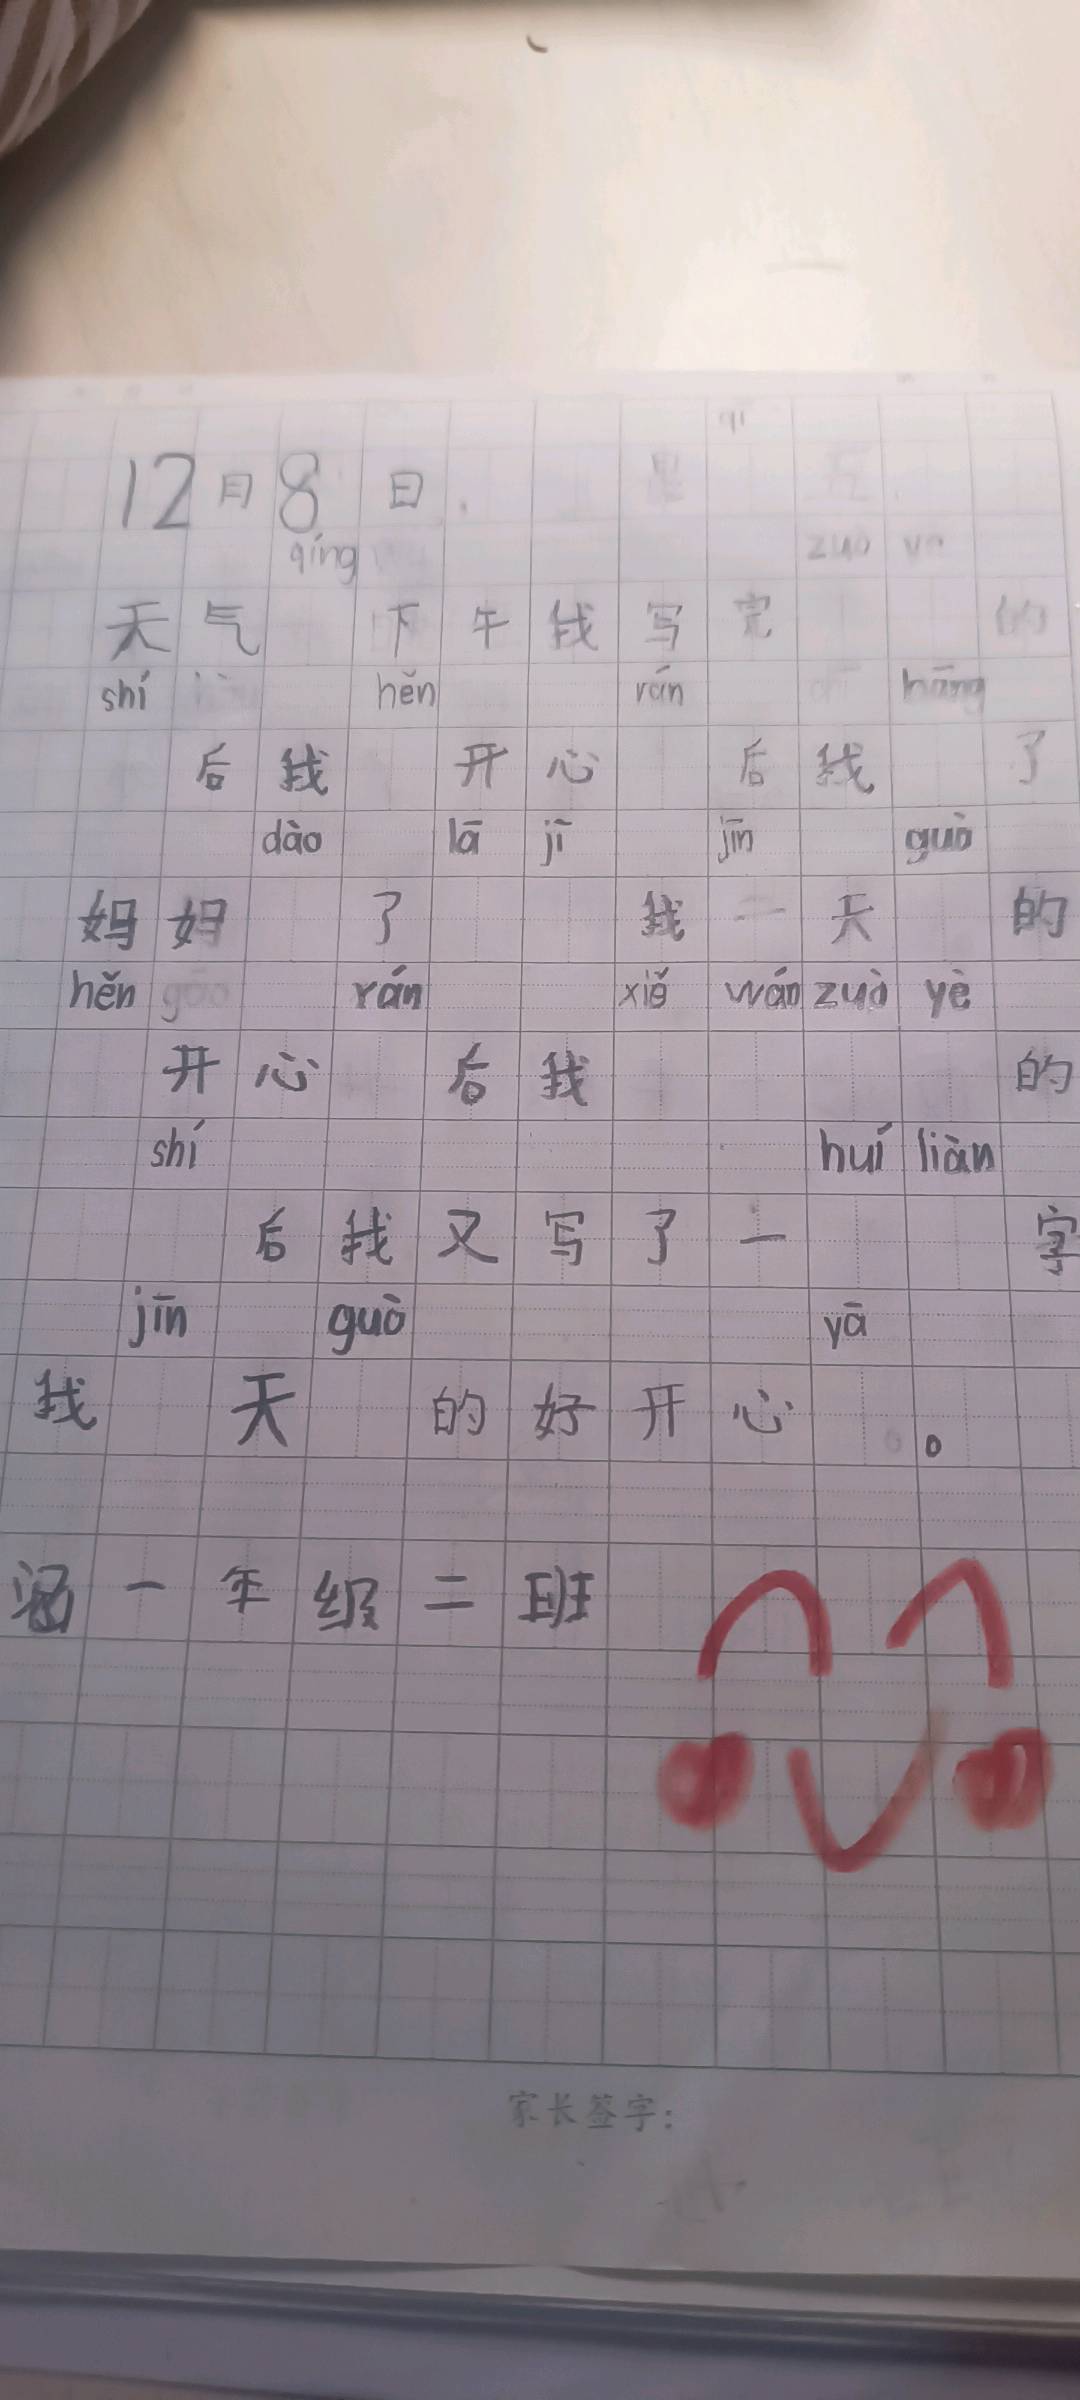 12月8日
qíng zuo
天气 下午我写完 的
shí hěn rán hāng
后我 开心 后我 了
dào lā jī jīn guò
妈妈 了 我一天 的
hěn gāo rán xiě wán zuò yè
开心 后我 的
shí huí liàn
后我又写了一 字
jīn guò yā
我 天 的好开心 。
涵一年级二班
家长签字: